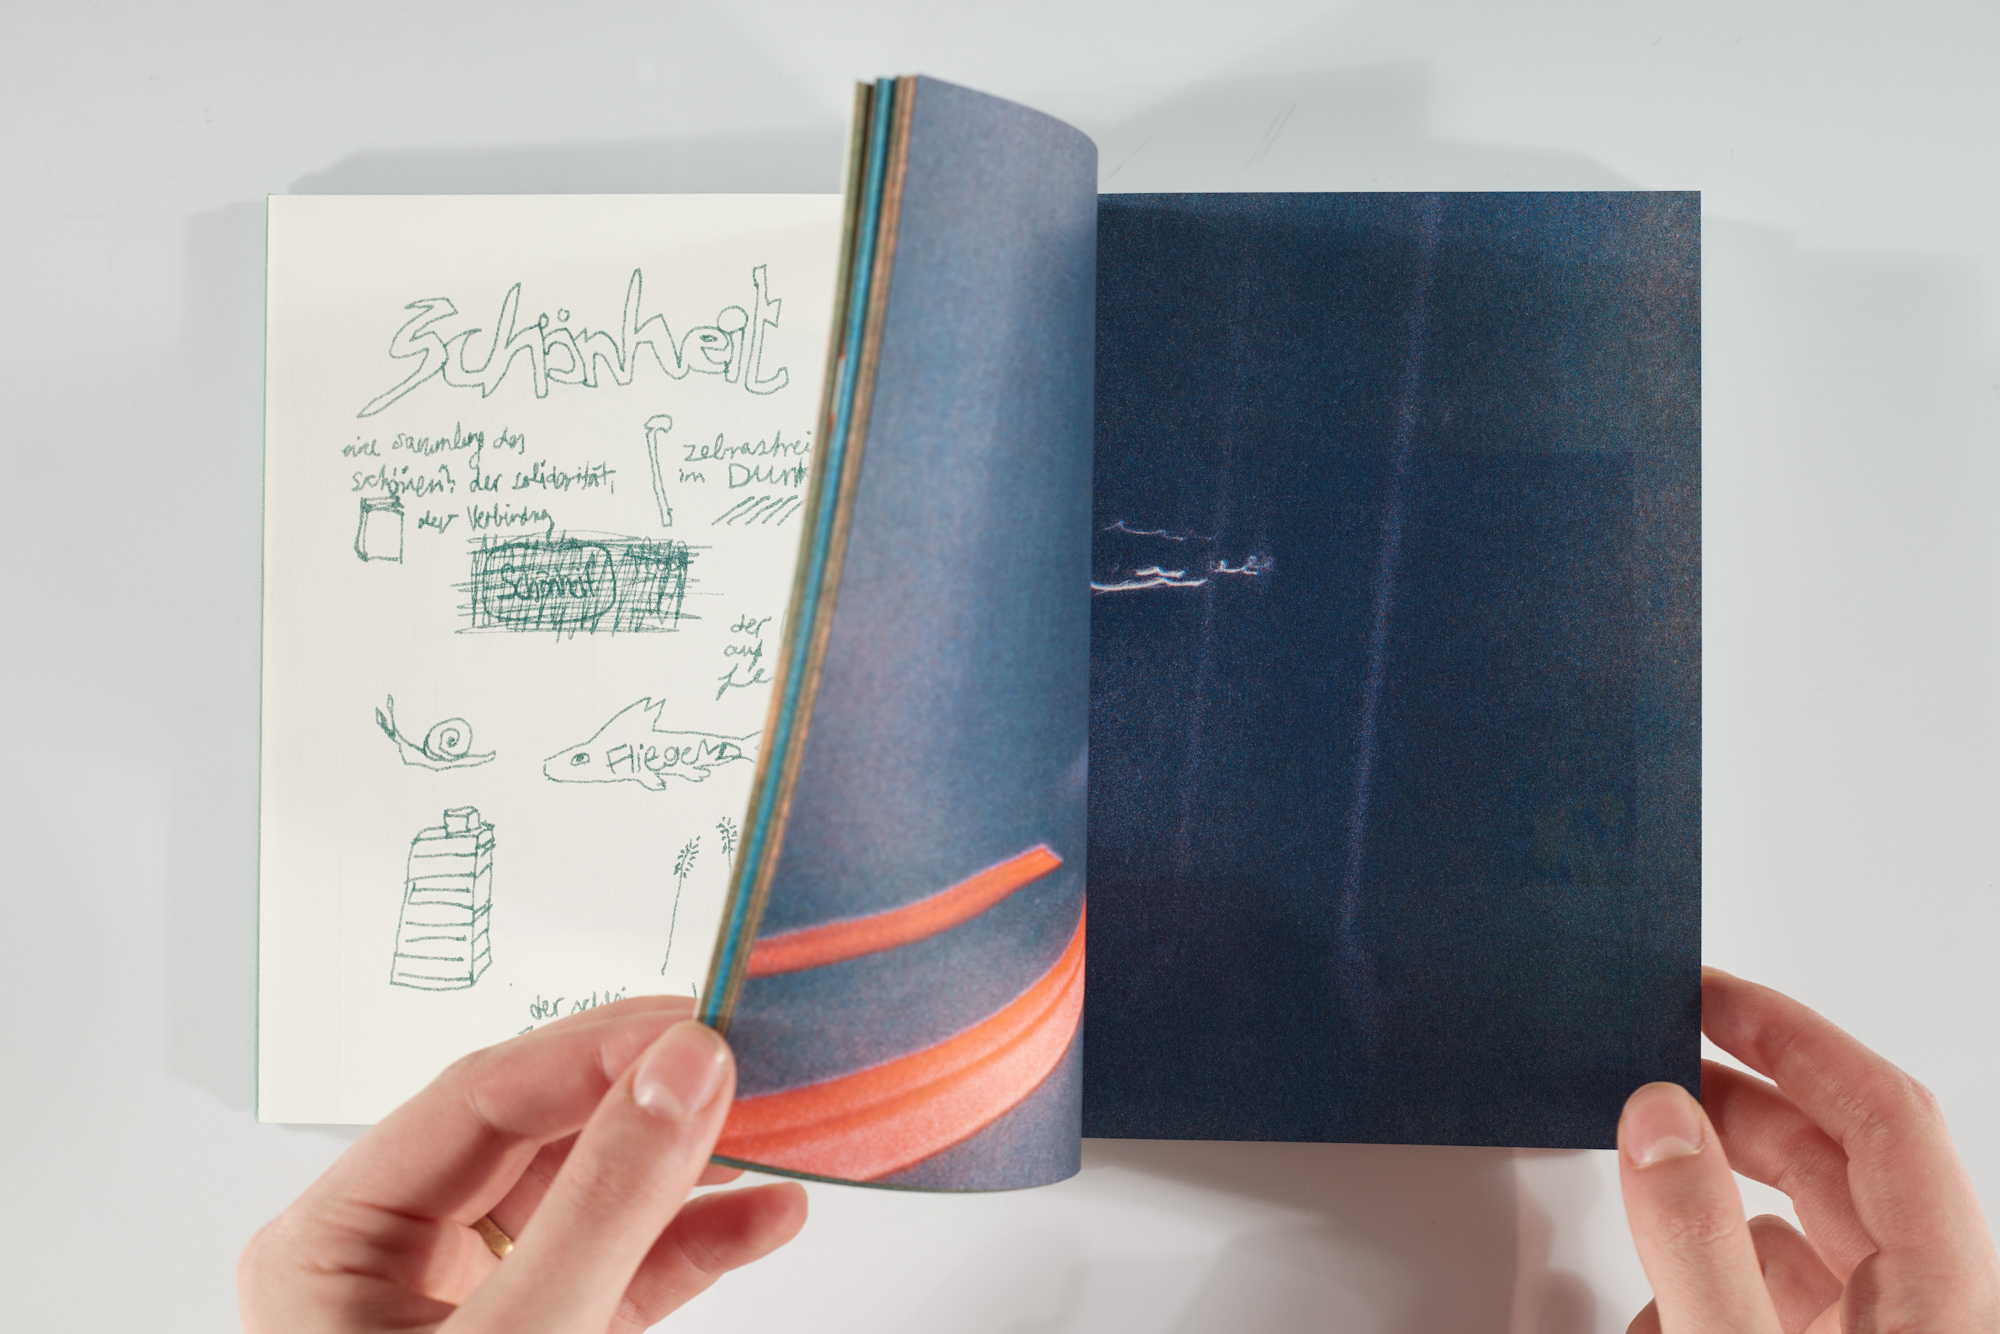 Schönheit
eine Sammlung des
schönen? der solidarität,
der Verbindung
zebrastrei
im Dunk
Schönheit
der
auf
Le
Fliegen
der